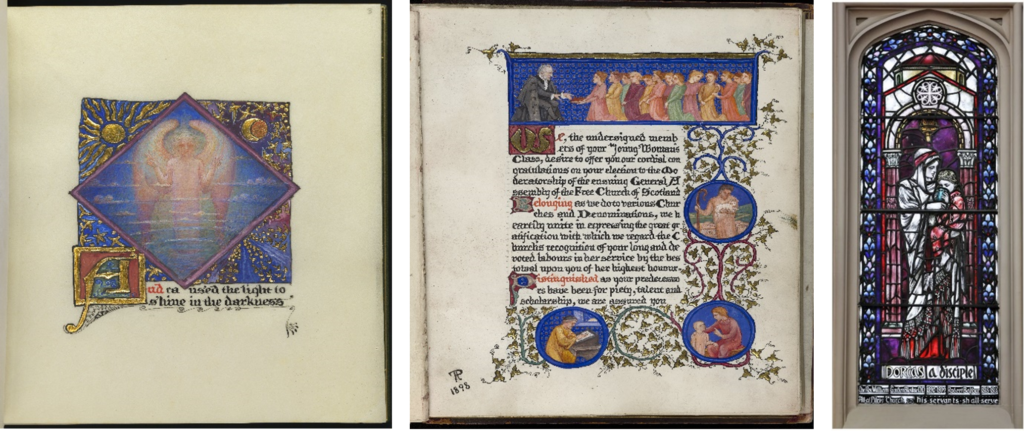 And ca used the light to
shine in the darkness
We, the undersigned memb
ers of your Young Womans
Class, desire to offer you our cordial con
gratulations on your election to the Mo
deratorship of the ensuing General A
ssembly of the Free Church of Scotland
Belonging as we do to various Chur
ches and Denominations, we h
eartily unite in expressing the great gr
atification with which we regard the C
hurchs recognition of your long and de
voted labours in her service by the bes
towal upon you of her highest honour.
Distinguished as your predecess
ors have been for piety, talent and
scholarship, we are assured you
PR
1898
DORCAS a disciple
his servants shall serve